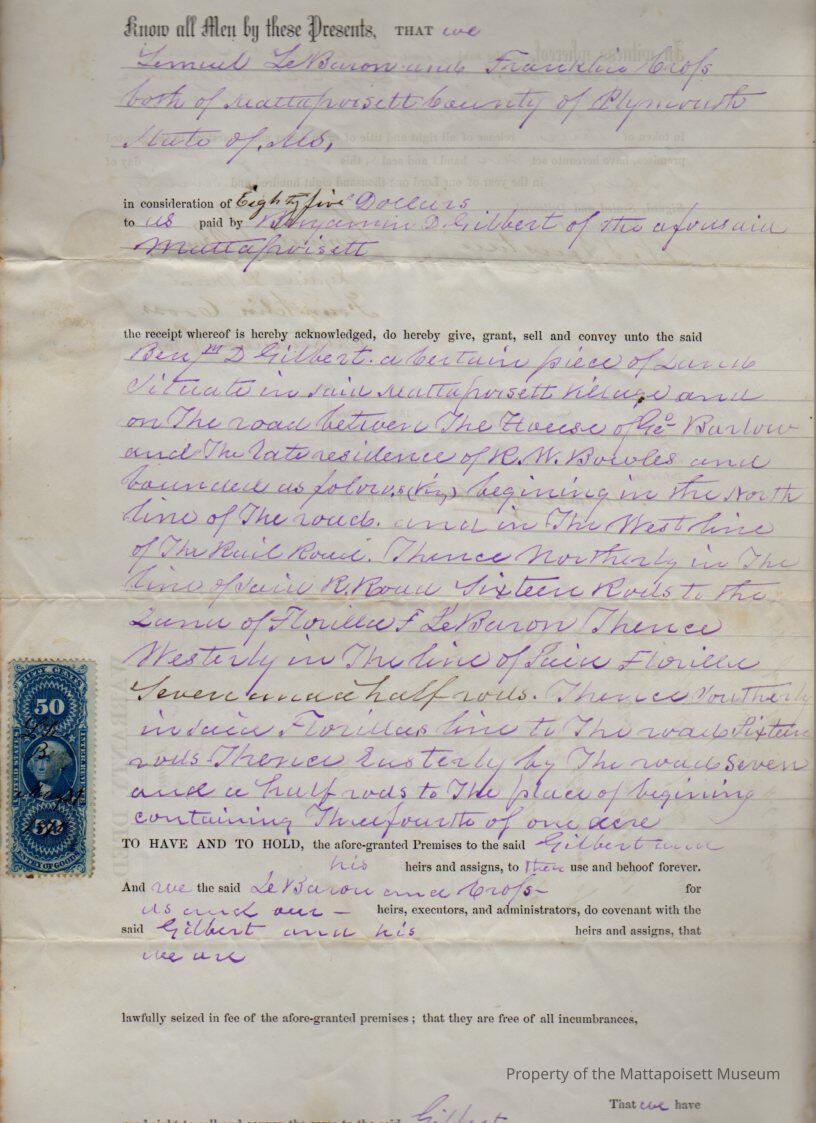 Know all Men by these Presents, THAT we
Lemuel LeBaron and Franklin Cross
both of Mattapoisett County of Plymouth
State of Ms,
in consideration of Eighty five Dollars
to us paid by Benjamin D. Gilbert of the aforesaid
Mattapoisett
the receipt whereof is hereby acknowledged, do hereby give, grant, sell and convey unto the said
Benjm D Gilbert. a Certain piece of Land
Situate in said Mattapoisett Village and
on The road between The House of Geo Barlow
and The late residence of R. W. Bowles and
bounded as folows (Viz) begining in the North
line of The road. and in The West line
of The Rail Road. Thence Northerly in The
line of said R. Road Sixteen Rods to the
Land of Florilla F LeBaron Thence
Westerly in The line of Said Florilla
Seven and a half rods. Thence Southerly
in said Florillas line to The road Sixteen
rods. Thence Easterly by The road Seven
and a half rods to The place of begining
containing Three fourth of one acre
TO HAVE AND TO HOLD, the afore-granted Premises to the said Gilbert and
his heirs and assigns, to Their use and behoof forever.
And we the said LeBaron and Cross for
us and our heirs, executors, and administrators, do covenant with the
said Gilbert and his heirs and assigns, that
we are
lawfully seized in fee of the afore-granted premises; that they are free of all incumbrances,
That we have
Gilbert
FIFTY CENTS
50
50
Property of the Mattapoisett Museum